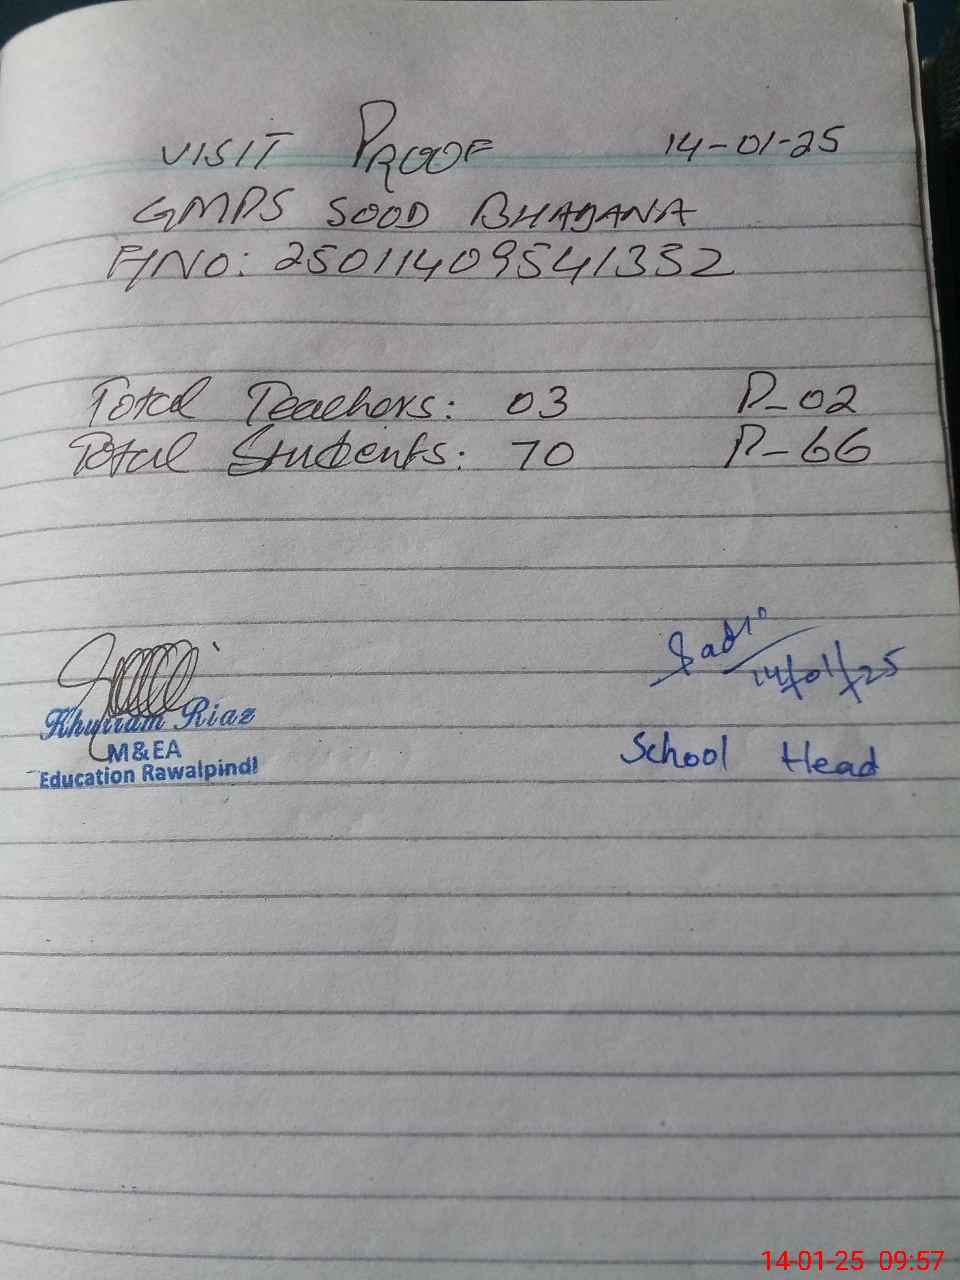 VISIT PROOF 14-01-25
GMPS SOOD BHADANA
F/NO: 25011409541332
Total Teachers: 03 P-02
Total Students: 70 P-66
14/01/25
Khurram Riaz
M&EA
Education Rawalpindi
School Head
14-01-25 09:57